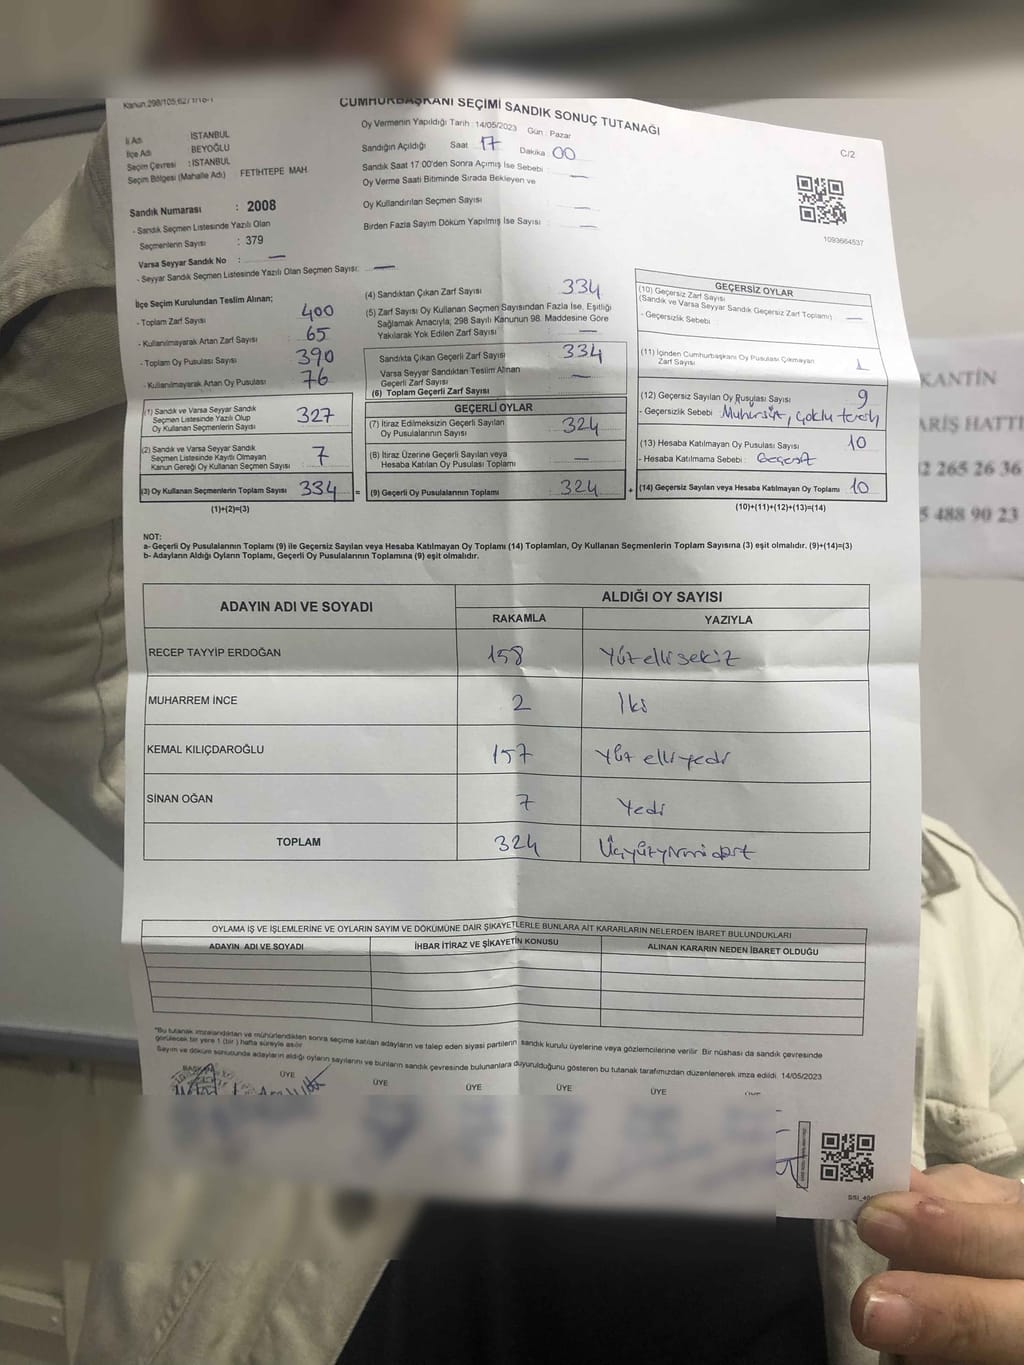 Kanun.298/105,627 1/18-1
CUMHURBAŞKANI SEÇİMİ SANDIK SONUÇ TUTANAĞI
İl Adı İSTANBUL
İlçe Adı BEYOĞLU
Seçim Çevresi : İSTANBUL
Seçim Bölgesi (Mahalle Adı) FETİHTEPE MAH.
Oy Vermenin Yapıldığı Tarih : 14/05/2023 Gün : Pazar
Sandığın Açıldığı Saat 17 Dakika 00
Sandık Saat 17:00'den Sonra Açımış İse Sebebi : —
Oy Verme Saati Bitiminde Sırada Bekleyen ve
Oy Kullandırılan Seçmen Sayısı : —
Birden Fazla Sayım Döküm Yapılmış İse Sayısı : —
C/2
1093664537
Sandık Numarası : 2008
- Sandık Seçmen Listesinde Yazılı Olan
Seçmenlerin Sayısı : 379
Varsa Seyyar Sandık No : —
- Seyyar Sandık Seçmen Listesinde Yazılı Olan Seçmen Sayısı: —
İlçe Seçim Kurulundan Teslim Alınan;
- Toplam Zarf Sayısı 400
- Kullanılmayarak Artan Zarf Sayısı 65
- Toplam Oy Pusulası Sayısı 390
- Kullanılmayarak Artan Oy Pusulası 76
(1) Sandık ve Varsa Seyyar Sandık
Seçmen Listesinde Yazılı Olup
Oy Kullanan Seçmenlerin Sayısı 327
(2) Sandık ve Varsa Seyyar Sandık
Seçmen Listesinde Kayıtlı Olmayan
Kanun Gereği Oy Kullanan Seçmen Sayısı 7
(3) Oy Kullanan Seçmenlerin Toplam Sayısı 334 =
(1)+(2)=(3)
(4) Sandıktan Çıkan Zarf Sayısı 334
(5) Zarf Sayısı Oy Kullanan Seçmen Sayısından Fazla İse, Eşitliği
Sağlamak Amacıyla; 298 Sayılı Kanunun 98. Maddesine Göre
Yakılarak Yok Edilen Zarf Sayısı —
Sandıkta Çıkan Geçerli Zarf Sayısı 334
Varsa Seyyar Sandıktan Teslim Alınan
Geçerli Zarf Sayısı —
(6) Toplam Geçerli Zarf Sayısı
GEÇERLİ OYLAR
(7) İtiraz Edilmeksizin Geçerli Sayılan
Oy Pusulalarının Sayısı 324
(8) İtiraz Üzerine Geçerli Sayılan veya
Hesaba Katılan Oy Pusulası Toplamı —
(9) Geçerli Oy Pusulalarının Toplamı 324 +
GEÇERSİZ OYLAR
(10) Geçersiz Zarf Sayısı
(Sandık ve Varsa Seyyar Sandık Geçersiz Zarf Toplamı) : —
- Geçersizlik Sebebi :
(11) İçinden Cumhurbaşkanı Oy Pusulası Çıkmayan
Zarf Sayısı 1
(12) Geçersiz Sayılan Oy Pusulası Sayısı 9
- Geçersizlik Sebebi : Mühürsüz, çoklu tercih
(13) Hesaba Katılmayan Oy Pusulası Sayısı 10
- Hesaba Katılmama Sebebi :
(14) Geçersiz Sayılan veya Hesaba Katılmayan Oy Toplamı 10
(10)+(11)+(12)+(13)=(14)
NOT:
a- Geçerli Oy Pusulalarının Toplamı (9) ile Geçersiz Sayılan veya Hesaba Katılmayan Oy Toplamı (14) Toplamları, Oy Kullanan Seçmenlerin Toplam Sayısına (3) eşit olmalıdır. (9)+(14)=(3)
b- Adayların Aldığı Oyların Toplamı, Geçerli Oy Pusulalarının Toplamına (9) eşit olmalıdır.
ADAYIN ADI VE SOYADI ALDIĞI OY SAYISI
RAKAMLA YAZIYLA
RECEP TAYYİP ERDOĞAN 158 Yüz elli sekiz
MUHARREM İNCE 2 İki
KEMAL KILIÇDAROĞLU 157 Yüz elli yedi
SİNAN OĞAN 7 Yedi
TOPLAM 324 Üçyüzyirmidört
OYLAMA İŞ VE İŞLEMLERİNE VE OYLARIN SAYIM VE DÖKÜMÜNE DAİR ŞİKAYETLERLE BUNLARA AİT KARARLARIN NELERDEN İBARET BULUNDUKLARI
ADAYIN ADI VE SOYADI İHBAR İTİRAZ VE ŞİKAYETİN KONUSU ALINAN KARARIN NEDEN İBARET OLDUĞU
"Bu tutanak imzalandıktan ve mühürlendikten sonra seçime katılan adayların ve talep eden siyasi partilerin sandık kurulu üyelerine veya gözlemcilerine verilir. Bir nüshası da sandık çevresinde
görülecek bir yere 1 (bir ) hafta süreyle asılır
Sayım ve döküm sonucunda adayların aldığı oyların sayılarını ve bunların sandık çevresinde bulunanlara duyurulduğunu gösteren bu tutanak tarafımızdan düzenlenerek imza edildi. 14/05/2023
BAŞKAN ÜYE ÜYE ÜYE ÜYE ÜYE
KANTİN
ARİŞ HATTI
2 265 26 36
5 488 90 23